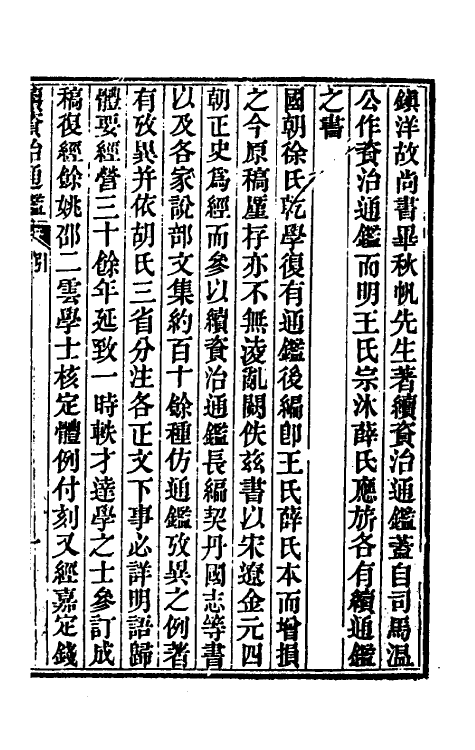 鎮洋故尚書畢秋帆先生著續資治通鑑蓋自司馬溫
公作資治通鑑而明王氏宗沐薛氏應旂各有續通鑑
之書
國朝徐氏乾學復有通鑑後編卽王氏薛氏本而增損
之今原稿厪存亦不無淩亂闕佚茲書以宋遼金元四
朝正史爲經而參以續資治通鑑長編契丹國志等書
以及各家說部文集約百十餘種仿通鑑攷異之例著
有攷異并依胡氏三省分注各正文下事必詳明語歸
體要經營三十餘年延致一時軼才達學之士參訂成
稿復經餘姚邵二雲學士核定體例付刻又經嘉定錢
續資治通鑑 序